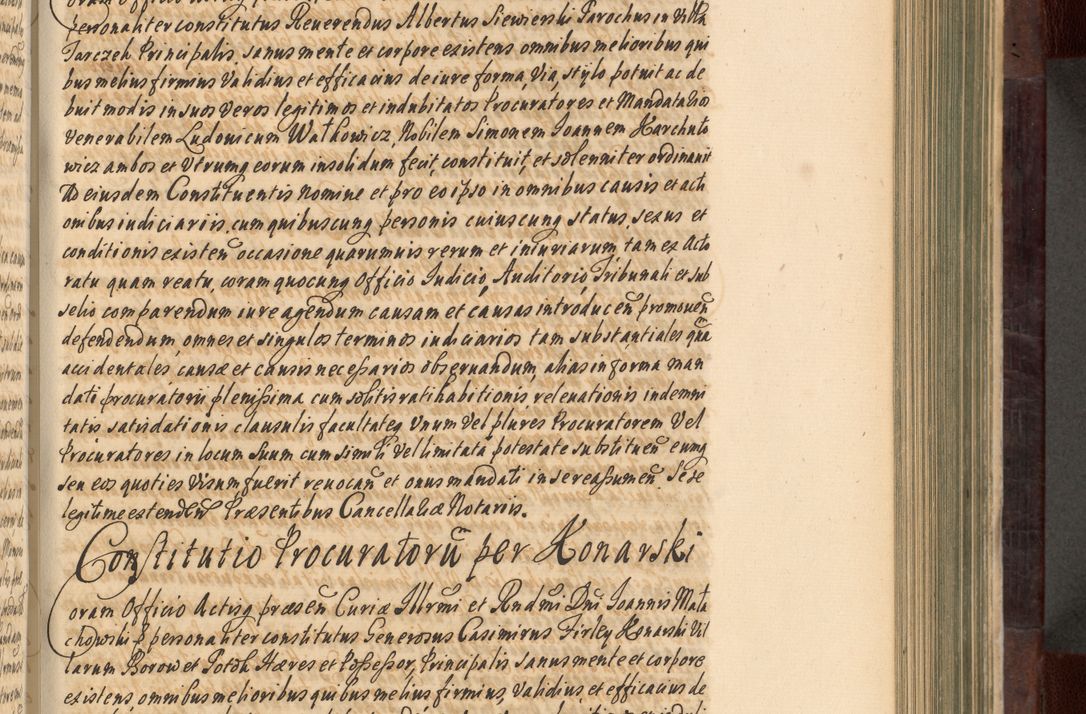 personaliter constitutus Reuerendus Albertus Siewierski Parochus in Villa
Jarczeh Principalis, sanus mente et corpore existens omnibus melioribus qui
bus melius firmius Validius et efficacius de iure forma, Via, stylo potuit ac de
buit modis in suos Veros legitimos et indubitatos Procuratores et Mandatarios
Venerabilem Ludouicum Watkowicz, Nobilem Simonem Joannem Karchuto
wicz ambos et Utrumq eorum insolidum fecit, constituit, et solenniter ordinauit
Ad eiusdem Constituentis nomine et pro eo ipso in omnibus causis et acti
onibus iudiciariis, cum quibuscunq personis cuiuscunq status, sexus et
conditionis existeñ occasione quarumuis rerum et iniuriarum, tam ex Acto
ratu quam reatu, coram quocunq Officio Judicio, Auditorio, Tribunali et sub
selio comparendum iure agendum causam et causas introduceñ promoueñ
defendendum, omnes et singulos terminos iudiciarios tam substantiales qua
accidentales causæ et causis necessarios obseruandum, alias in forma man
dati procuratorii plenissima cum solitis ratihabitionis, releuationis indemni
tatis satisdationis clausulis facultateq Unum Vel plures Procuratorem Vel
Procuratores in locum suum cum simili Vel limitata potestate substitueñ eumq
seu eos quoties Visum fuerit reuocañ et onus mandati in se reassumeñ. Se se
legitime estendeñ Præsentibus Cancellariæ Notariis.
Constitutio Procuratorũ per Konarski
Coram Officio Actisq præseñ Curiæ Illrmi et Rndmi Dni Joannis Mała
chowski personaliter constitutus Generosus Casimirus Firley Konarski Vil
larum Borow et Potok Hæres et Possessor, Principalis sanus mente et corpore
existens, omnibus melioribus quibus melius firmius, Validius, et efficacius de